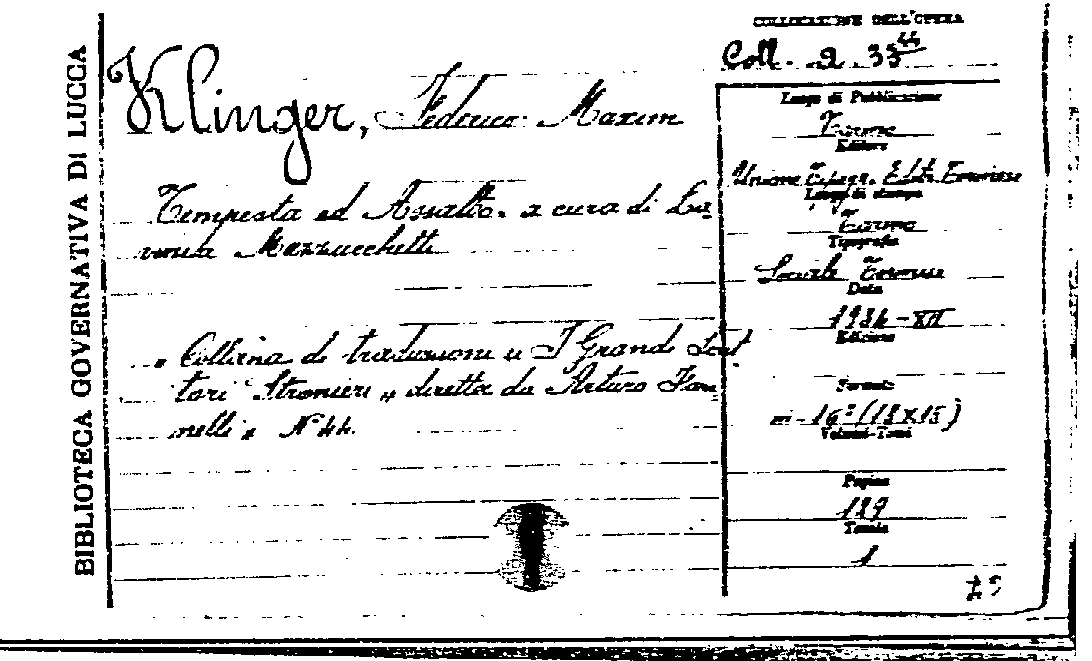 BIBLIOTECA GOVERNATIVA DI LUCCA
COLLOCAZIONE DELL'OPERA
Coll. 2. 33 44
Klinger, Federico Maxim
Tempesta ed Assalto. a cura di La
vinia Mazzucchetti
"Collana di traduzioni "I Grandi Scrit
tori Stranieri" diretta da Arturo Fari
nelli" N° 44.
Luogo di Pubblicazione
Torino
Editore
Unione Tipogr. Edit. Torinese
Luogo di stampa
Torino
Tipografia
Sociale Torinese
Data
1934-XII
Edizione
Formato
in-16° (18x15)
Volumi-Tomi
Pagine
189
Tavole
1